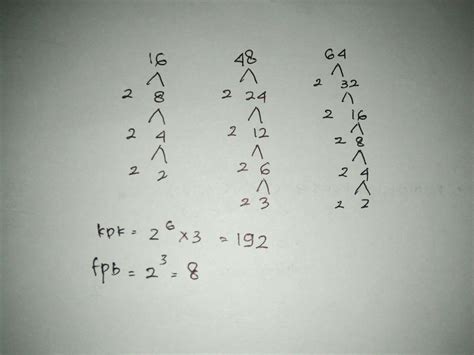 16 48 64
2 8 2 24 2 32
2 4 2 12 2 16
2 2 2 6 2 8
2 3 2 4
2 2
kpk = 2⁶ × 3 = 192
fpb = 2³ = 8